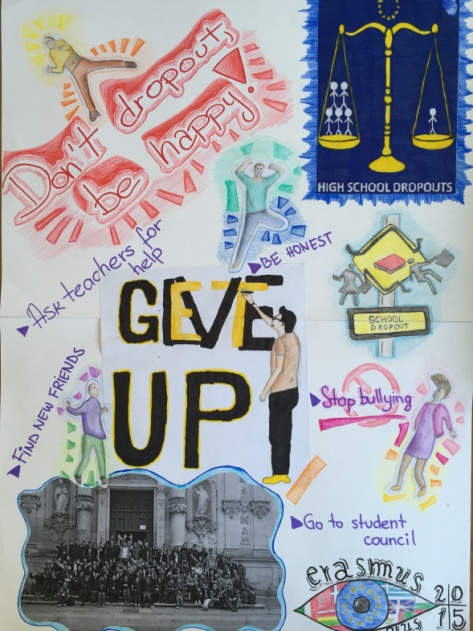 Don't dropout,
be happy!
HIGH SCHOOL DROPOUTS
BE HONEST
Ask teachers for
help
GIVE
UP
SCHOOL
DROPOUT
FIND NEW FRIENDS
Stop bullying
Go to student
council
erasmus
20
15